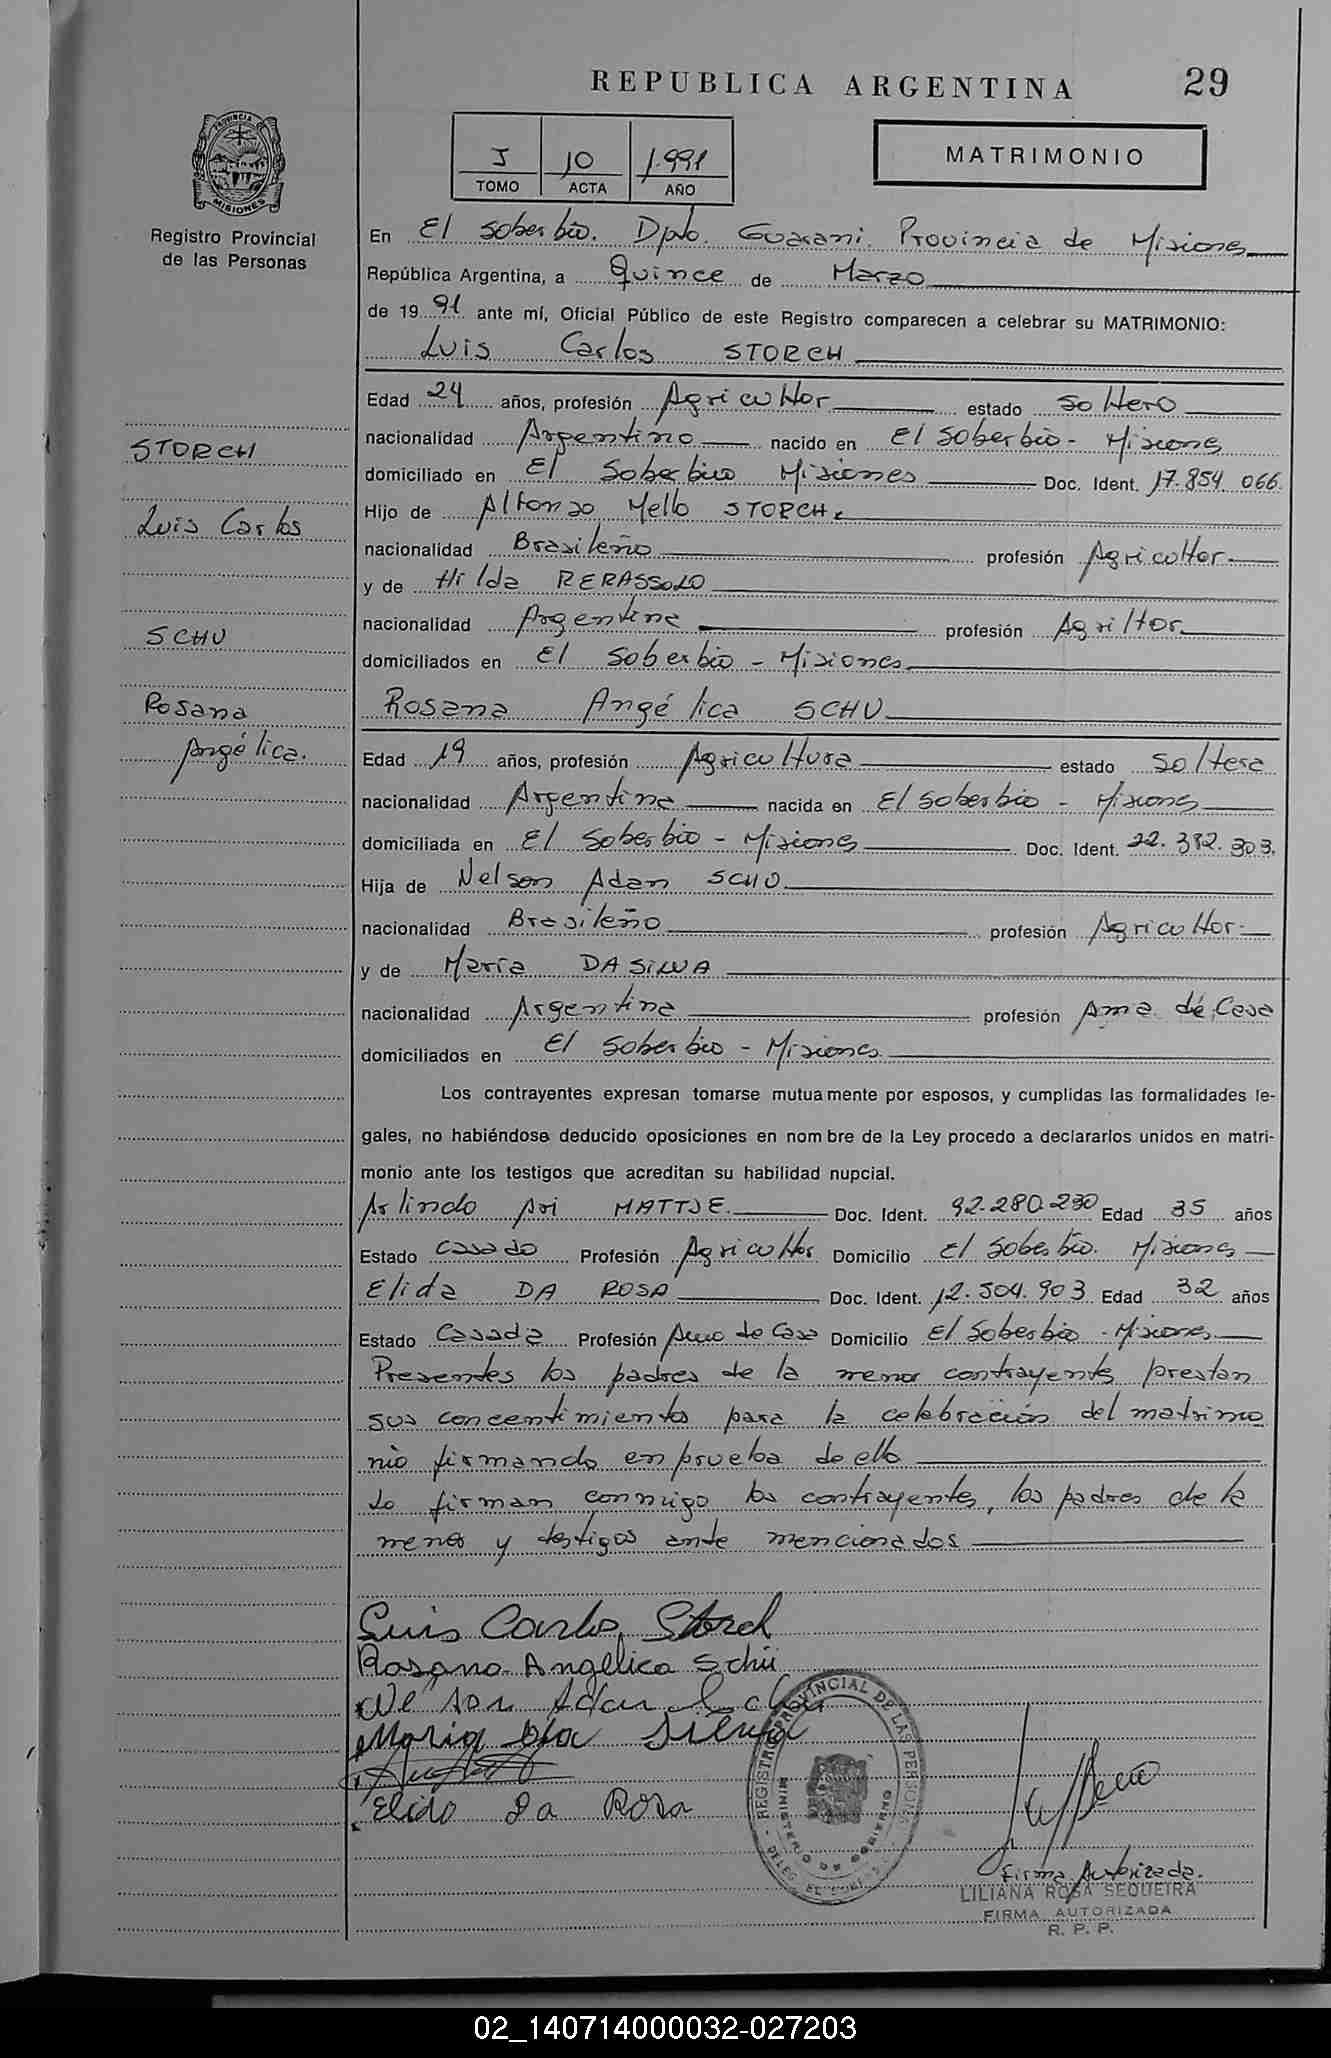 REPUBLICA ARGENTINA 29
I 10 1.991
TOMO ACTA AÑO
MATRIMONIO
PROVINCIA DE
MISIONES
Registro Provincial
de las Personas
En El Soberbio. Dpto. Guarani. Provincia de Misiones
República Argentina, a Quince de Marzo
de 19 91 ante mí, Oficial Público de este Registro comparecen a celebrar su MATRIMONIO:
Luis Carlos STORCH
Edad 24 años, profesión Agricultor estado Soltero
nacionalidad Argentino nacido en El Soberbio - Misiones
domiciliado en El Soberbio Misiones Doc. Ident. 17.854.066.
Hijo de Alfonzo Mello STORCH.
nacionalidad Brasileño profesión Agricultor
y de Hilda RERASSOLO
nacionalidad Argentina profesión Agriltor
domiciliados en El Soberbio - Misiones
STORCH
Luis Carlos
SCHU
Rosana
Angélica.
Rosana Angélica SCHU
Edad 19 años, profesión Agricultura estado Soltera
nacionalidad Argentina nacida en El Soberbio - Misiones
domiciliada en El Soberbio - Misiones Doc. Ident. 22.382.303.
Hija de Nelson Adan SCHU
nacionalidad Brasileño profesión Agricultor
y de Maria DA SILVA
nacionalidad Argentina profesión Ama de Casa
domiciliados en El Soberbio - Misiones
Los contrayentes expresan tomarse mutuamente por esposos, y cumplidas las formalidades le-
gales, no habiéndose deducido oposiciones en nombre de la Ley procedo a declararlos unidos en matri-
monio ante los testigos que acreditan su habilidad nupcial.
Arlindo Ari MATTJE. Doc. Ident. 92.280.290 Edad 35 años
Estado Casado Profesión Agricultor Domicilio El Soberbio. Misiones
Elida DA ROSA Doc. Ident. 12.504.903 Edad 32 años
Estado Casada Profesión Ama de Casa Domicilio El Soberbio - Misiones
Presentes los padres de la menor contrayente, prestan
sus concentimientos para la celebración del matrimo
nio firmando en prueba de ello
Lo firman conmigo los contrayentes, los padres de la
menor y testigos ante mencionados
Luis Carlos Storch
Rosana Angelica Schü
Nelson Adan Schu
Maria Da Silva
Elida Da Rosa
REGISTRO PROVINCIAL DE LAS PERSONAS
MINISTERIO DE GOBIERNO
DELEG. EL SOBERBIO
Firma Autorizada.
LILIANA ROSA SEQUEIRA
FIRMA AUTORIZADA
R. P. P.
02_140714000032-027203